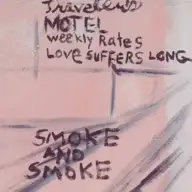 Travelers
MOTEL
weekly Rates
LOVE SUFFERS LONG
SMOKE
AND
SMOKE